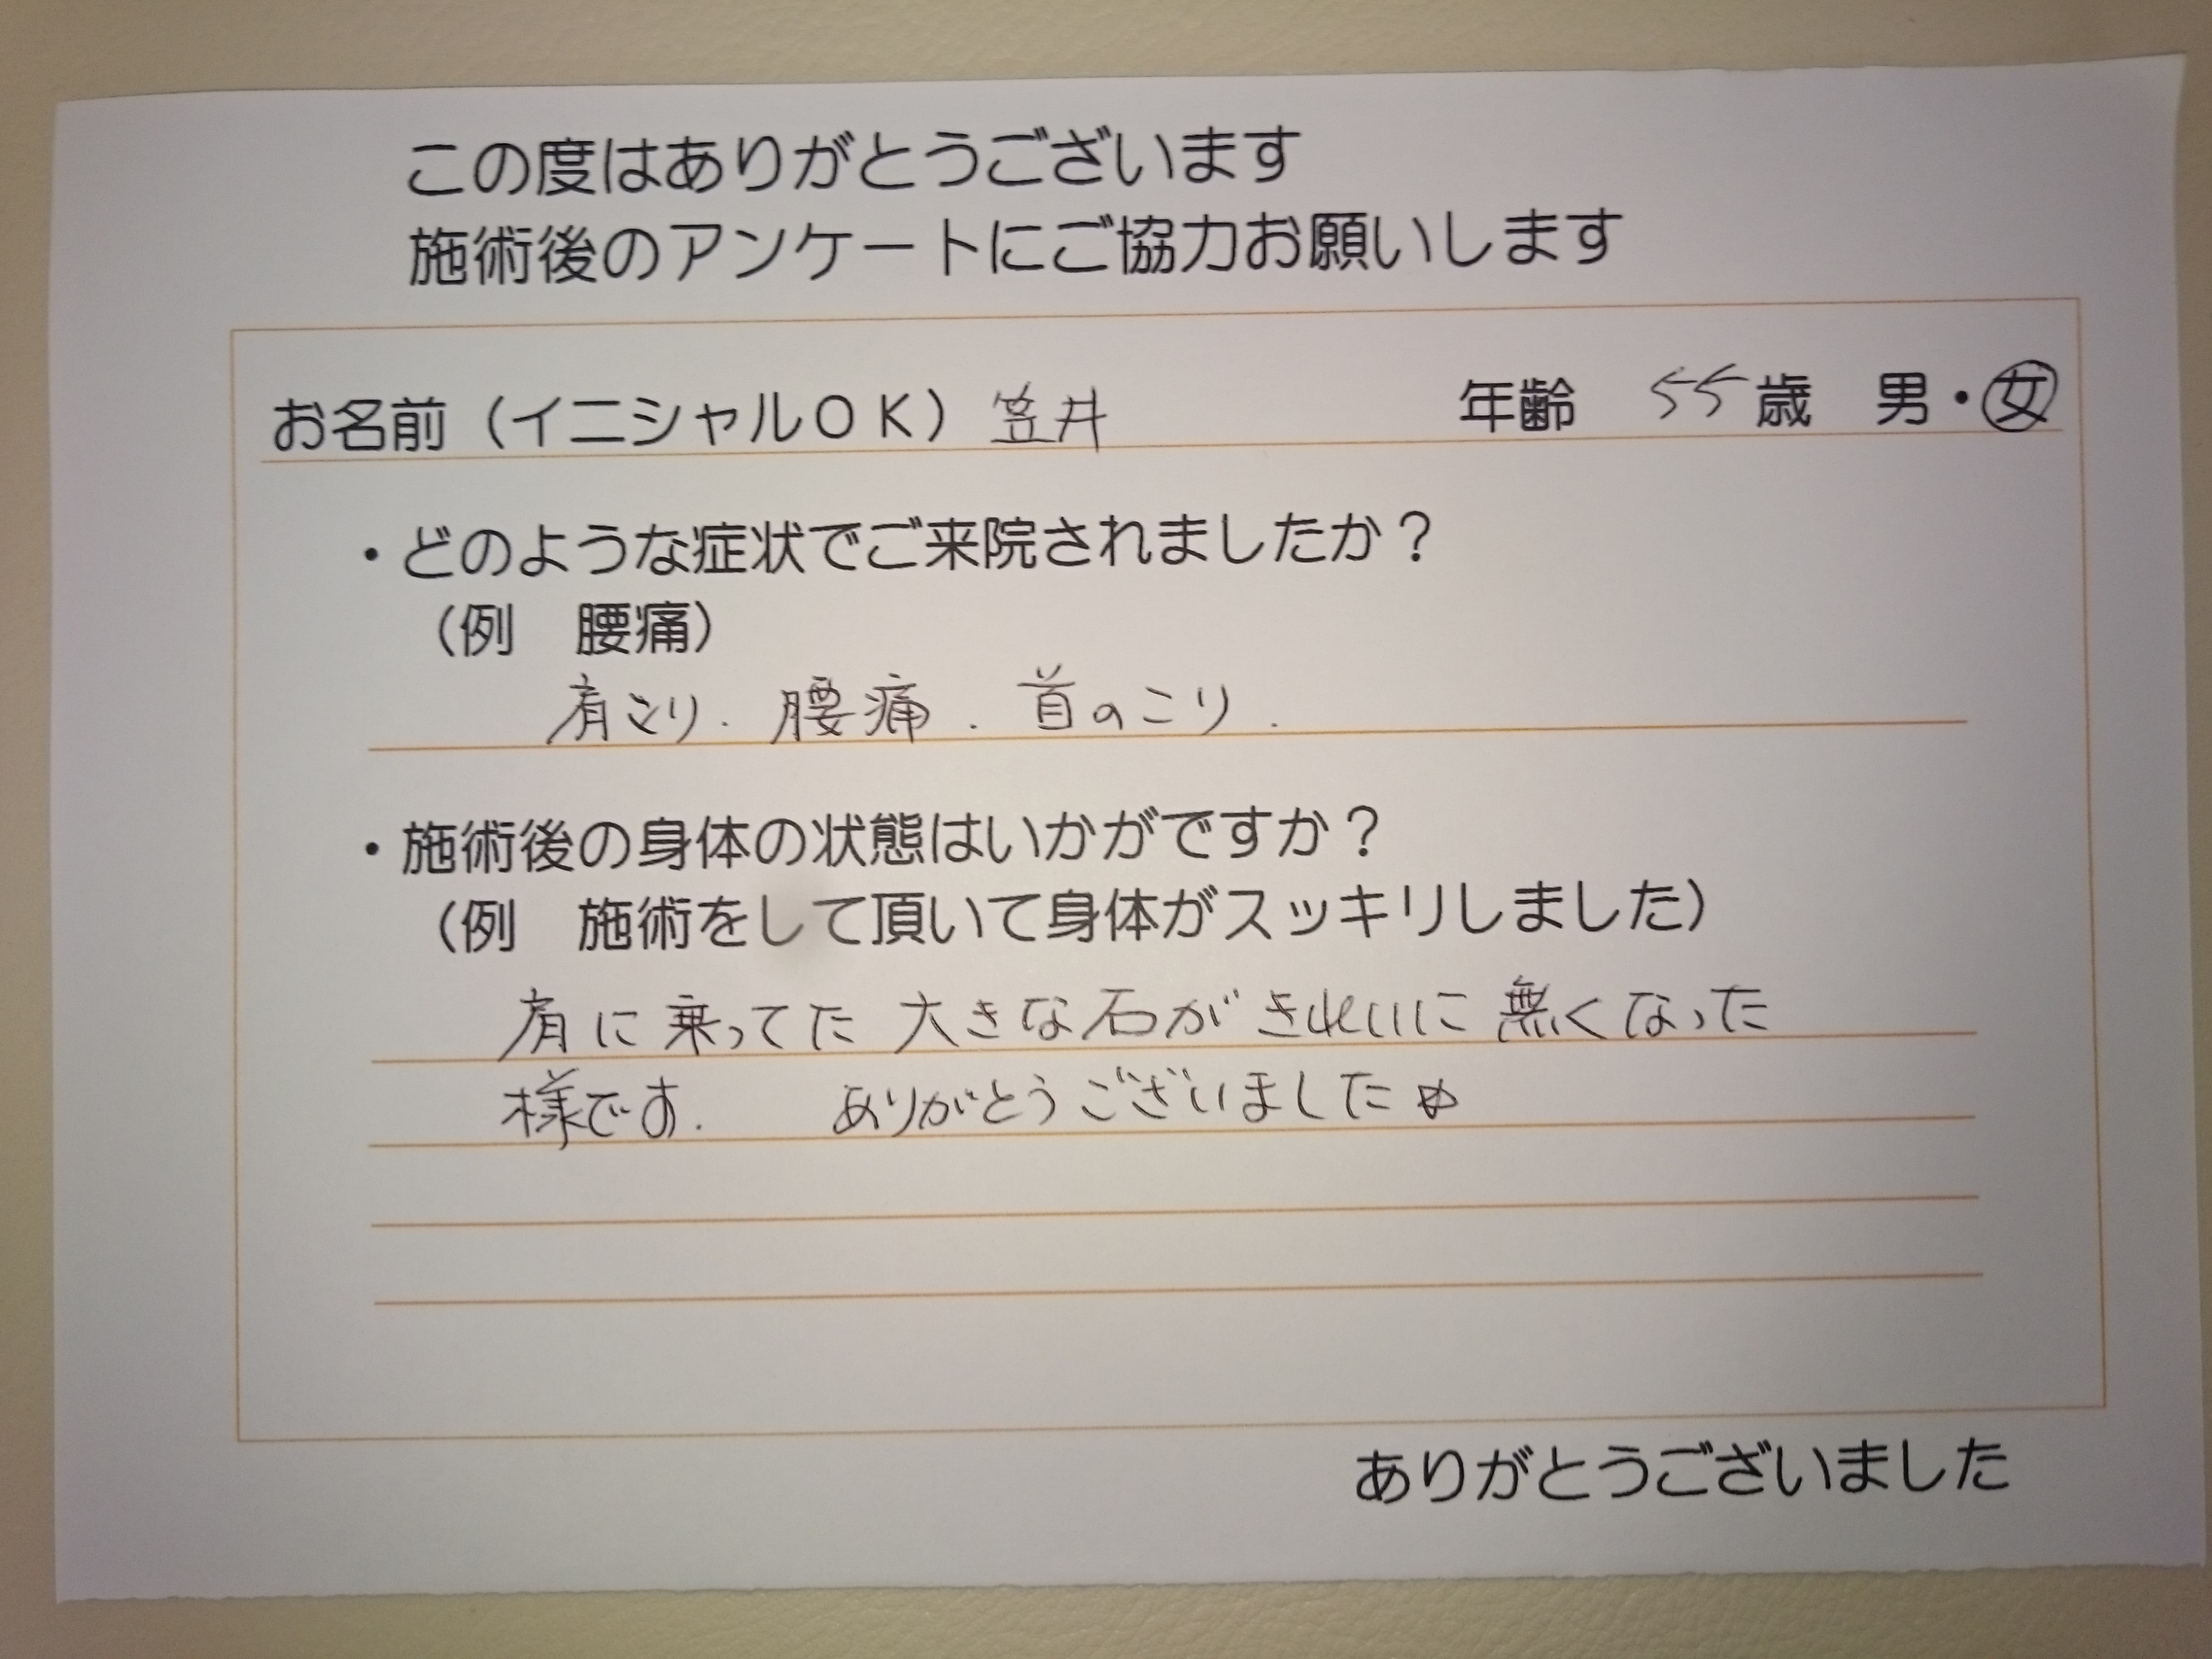 この度はありがとうございます
施術後のアンケートにご協力お願いします
お名前（イニシャルＯＫ）笠井　年齢　55歳　男・女
・どのような症状でご来院されましたか？
（例　腰痛）
肩こり．腰痛．首のこり．
・施術後の身体の状態はいかがですか？
（例　施術をして頂いて身体がスッキリしました）
肩に乗ってた大きな石がきれいに無くなった
様です．　ありがとうございました☆
ありがとうございました